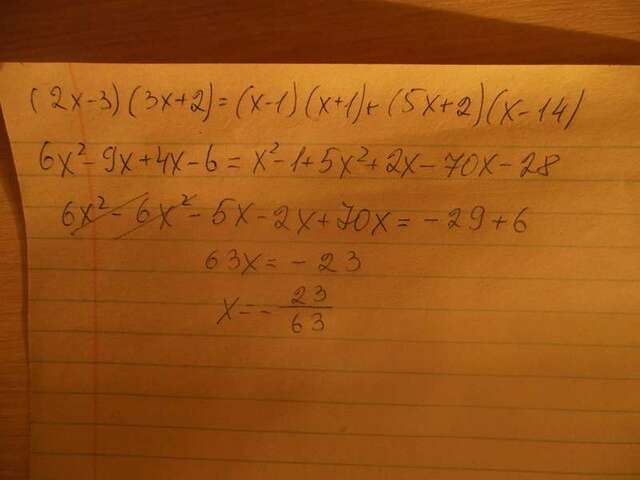 (2x-3)(3x+2)=(x-1)(x+1)+(5x+2)(x-14)
6x²-9x+4x-6=x²-1+5x²+2x-70x-28
6x²-6x²-5x-2x+70x=-29+6
63x=-23
x=-23/63